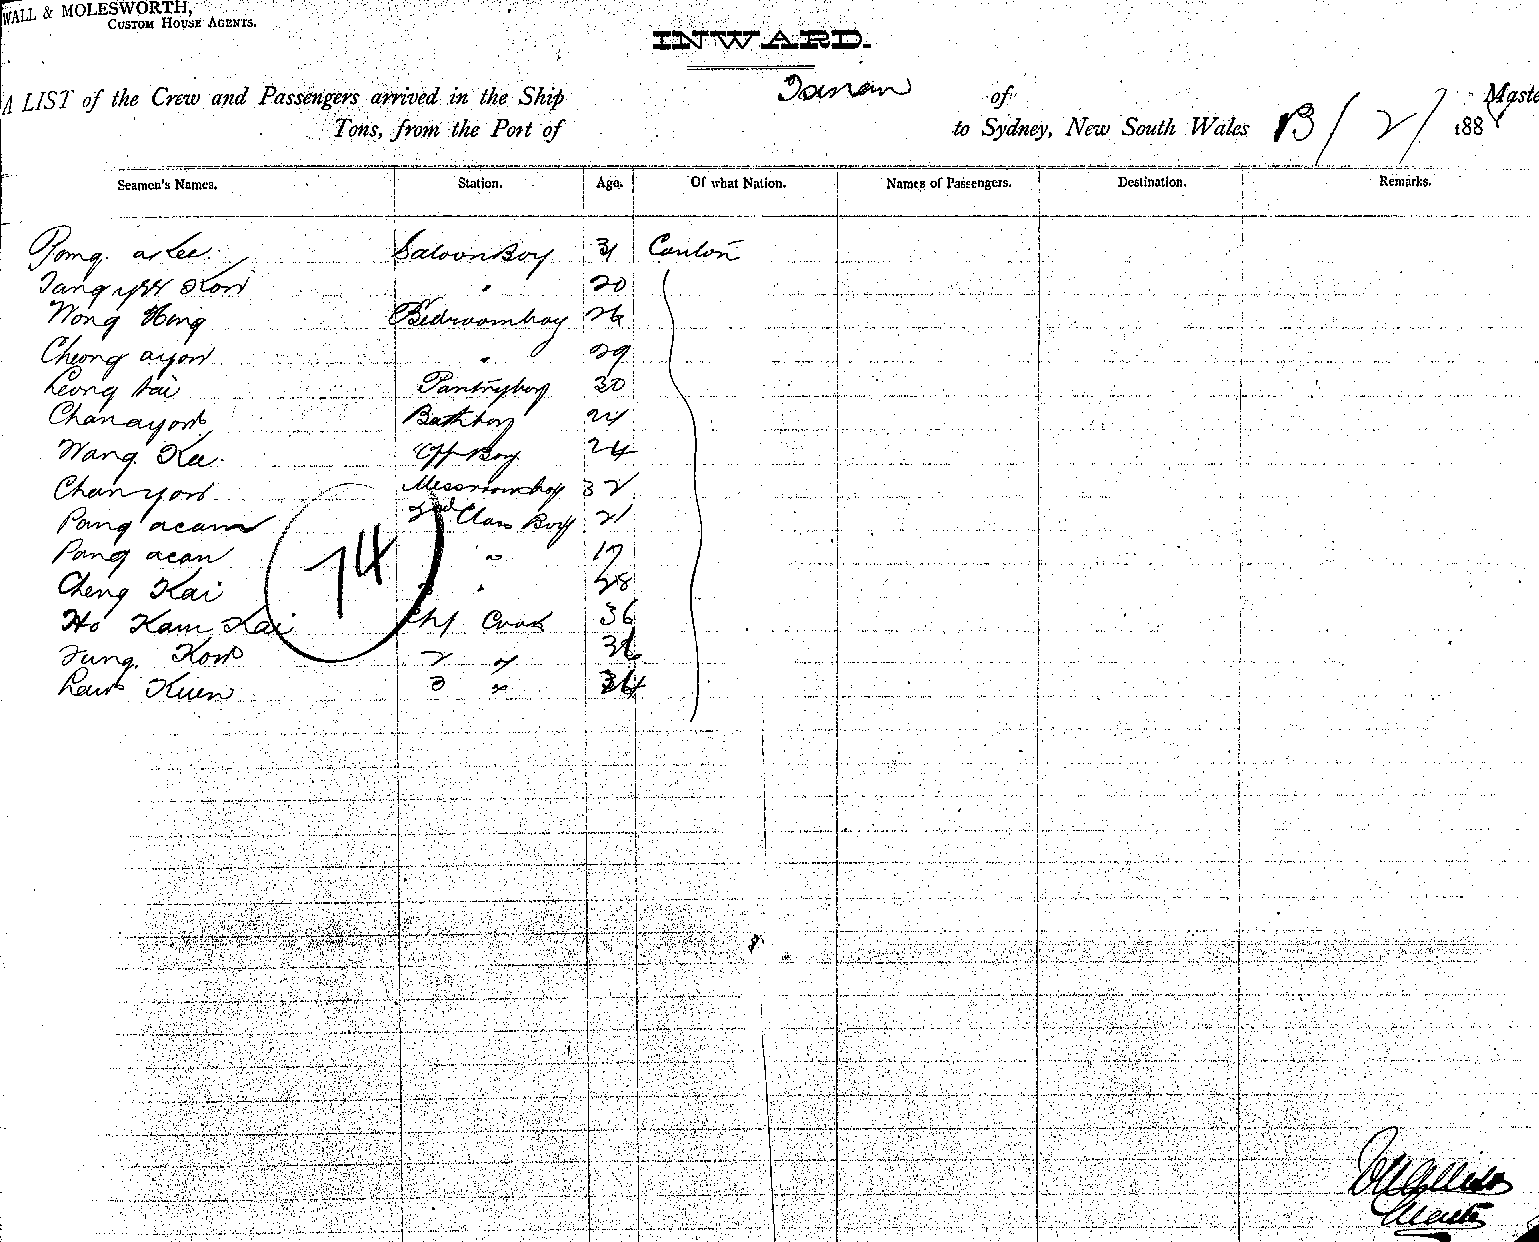 WALL & MOLESWORTH,
CUSTOM HOUSE AGENTS.
INWARD.
A LIST of the Crew and Passengers arrived in the Ship Tainan of Maste
Tons, from the Port of to Sydney, New South Wales 13/2/ 188
Seamen's Names. Station. Age. Of what Nation. Names of Passengers. Destination. Remarks.
Pong akee Saloon Boy 31 Canton
Tang yee Kow " 20
Wong Hing Bedroomboy 26
Cheong ayow " 29
Leong tai Pantryboy 30
Chanayow Bathboy 24
Wang Kee Off Boy 24
Chan yow Messroomboy 32
Pang acam 2nd Class Boy 21
Pang acan " 19
Cheng Kai " 28
Ho Kam Kai Chf Cook 36
Tung Kow 2 " 36
Law Kuen 3 " 34
74
Master